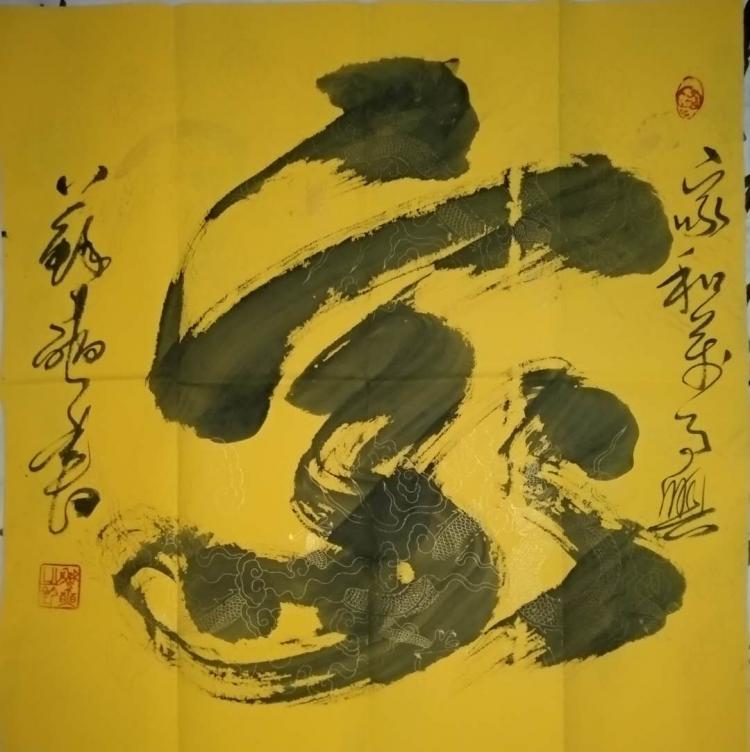 家和萬事興
家
蘇 書